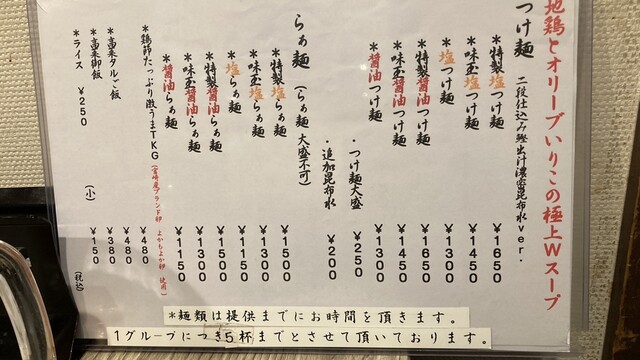 地鶏とオリーブいりこの極上Wスープ
つけ麺 二段仕込み鰹出汁濃密昆布水ver.
*特製塩つけ麺 ¥1650
*味玉塩つけ麺 ¥1450
*塩つけ麺 ¥1300
*特製醤油つけ麺 ¥1650
*味玉醤油つけ麺 ¥1450
*醤油つけ麺 ¥1300
・つけ麺大盛 ¥250
・追加昆布水 ¥200
らぁ麺 (らぁ麺 大盛不可)
*特製塩らぁ麺 ¥1500
*味玉塩らぁ麺 ¥1300
*塩らぁ麺 ¥1150
*特製醤油らぁ麺 ¥1500
*味玉醤油らぁ麺 ¥1300
*醤油らぁ麺 ¥1150
(宮崎産ブランド卵 よかもよか卵 使用)
*鶏節たっぷり激うまTKG ¥480
*高来タルご飯 ¥480
*高来御飯 ¥380
*ライス ¥250 (小) ¥150
(税込)
*麺類は提供までにお時間を頂きます。
1グループにつき5杯までとさせて頂いております。